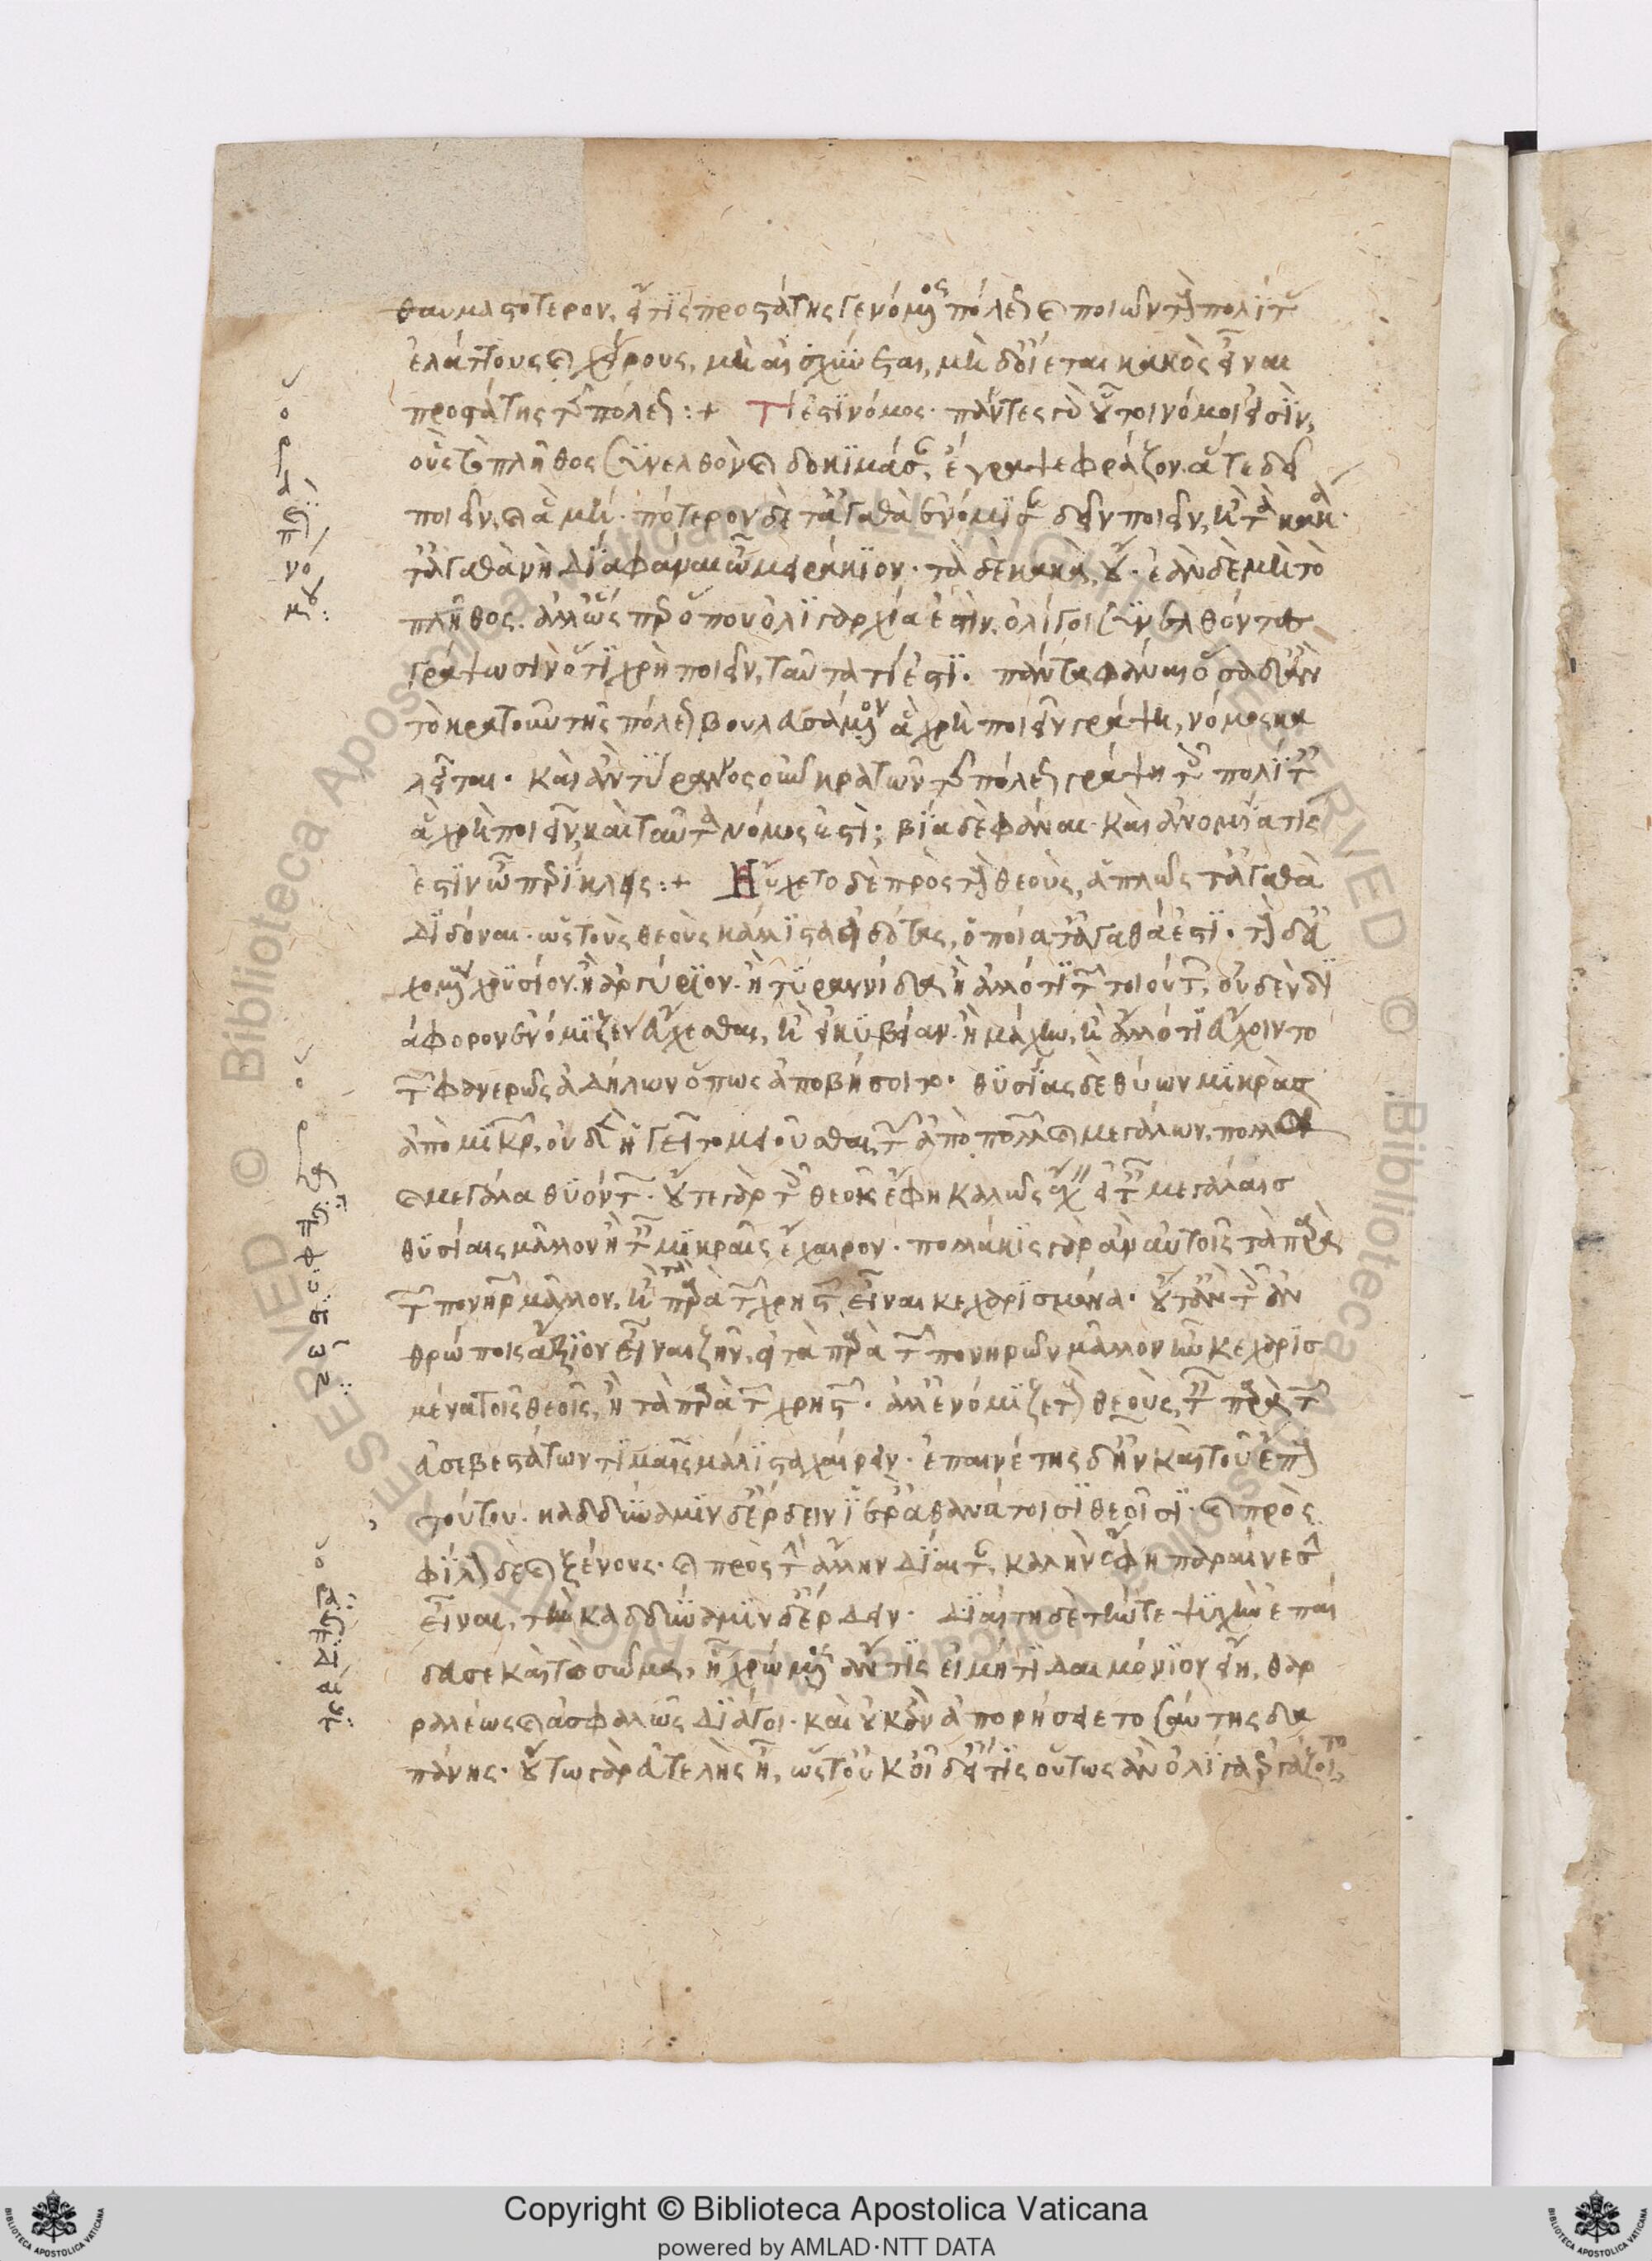 θαυμαστότερον, εἴ τις προστάτης γενόμενος πόλεως καὶ ποιῶν τοὺς πολίτας
ἐλάττους καὶ χείρους, μὴ αἰσχύνεται, μὴ δ' οἴεται κακὸς εἶναι
προστάτης τῆς πόλεως :+ Τί ἐστι νόμος· πάντες γὰρ οὗτοι νόμοι εἰσὶν,
οὓς τὸ πλῆθος συνελθὸν καὶ δοκιμάσαν, ἔγραψε φράζον ἅ τε δεῖ
ποιεῖν, καὶ ἃ μή· πότερον δὲ τἀγαθὰ ἐνόμισαν δεῖν ποιεῖν, ἢ τὰ κακά·
τἀγαθὰ νὴ Δία φάναι ὦ μειράκιον· τὰ δὲ κακὰ, οὔ· ἐὰν δὲ μὴ τὸ
πλῆθος, ἀλλ' ὥσπερ ὅπου ὀλιγαρχία ἐστὶν, ὀλίγοι συνελθόντες
γράψωσιν ὅ τι χρὴ ποιεῖν, ταῦτα τί ἐστι· πάντα φάναι ὅσα δ' ἂν
τὸ κρατοῦν τῆς πόλεως βουλευσάμενον ἃ χρὴ ποιεῖν γράψῃ, νόμος κα
λεῖται· καὶ ἂν τύραννος οὖν κρατῶν τῆς πόλεως γράψῃ τοῖς πολίταις
ἃ χρὴ ποιεῖν, καὶ ταῦτα νόμος ἐστί; βία δὲ φάναι καὶ ἀνομία τίς
ἐστιν ὦ Περίκλεις :+ Ηὔχετο δὲ πρὸς τοὺς θεοὺς, ἁπλῶς τἀγαθὰ
διδόναι· ὡς τοὺς θεοὺς κάλλιστα εἰδότας, ὁποῖα τἀγαθά ἐστι· τοὺς δ' εὐ
χομένους χρυσίον ἢ ἀργύριον ἢ τυραννίδα ἢ ἄλλό τι τῶν τοιούτων, οὐδὲν δι
άφορον ἐνόμιζεν εὔχεσθαι, ἢ εἰ κυβείαν ἢ μάχην, ἢ ἄλλό τι εὔχοιντο
τῶν φανερῶς ἀδήλων ὅπως ἀποβήσοιτο· θυσίας δὲ θύων μικρὰς
ἀπὸ μικρῶν, οὐδὲν ἡγεῖτο μειοῦσθαι τῶν ἀπὸ πολλῶν καὶ μεγάλων, πολλὰ
καὶ μεγάλα θυόντων· οὔτε γὰρ τοῖς θεοῖς ἔφη καλῶς ἔχειν εἰ ταῖς μεγάλαις
θυσίαις μᾶλλον ἢ ταῖς μικραῖς ἔχαιρον· πολλάκις γὰρ ἂν αὐτοῖς τὰ παρὰ
τῶν πονηρῶν μᾶλλον, ἢ τὰ παρὰ τῶν χρηστῶν εἶναι κεχαρισμένα· οὔτ' ἂν τοῖς ἀν
θρώποις ἄξιον εἶναι ζῆν, εἰ τὰ παρὰ τῶν πονηρῶν μᾶλλον ἦν κεχαρισ
μένα τοῖς θεοῖς, ἢ τὰ παρὰ τῶν χρηστῶν· ἀλλ' ἐνόμιζε τοὺς θεοὺς, ταῖς παρὰ τῶν
εὐσεβεστάτων τιμαῖς μάλιστα χαίρειν· ἐπαινέτης δ' ἦν καὶ τοῦ ἔπους
τούτου· καδδύναμιν δ' ἔρδειν ἱέρ' ἀθανάτοισι θεοῖσι· καὶ πρὸς
φίλους δὲ καὶ ξένους· καὶ πρὸς τὴν ἄλλην δίαιταν, καλὴν ἔφη παραίνεσιν
εἶναι, τὴν καδδύναμιν δ' ἔρδειν· Διαίτῃ δὲ τήν τε ψυχὴν ἐπαί
δευσε καὶ τὸ σῶμα, ᾗ χρώμενος ἄν τις εἰ μή τι δαιμόνιον εἴη, θαρ
ραλέως καὶ ἀσφαλῶς διάγοι· καὶ οὐκ ἂν ἀπορήσειε τοσαύτης δα
πάνης· οὕτω γὰρ εὐτελὴς ἦν, ὥστ' οὐκ οἶδ' εἴ τις οὕτως ἂν ὀλίγα ἐργάζοιτο